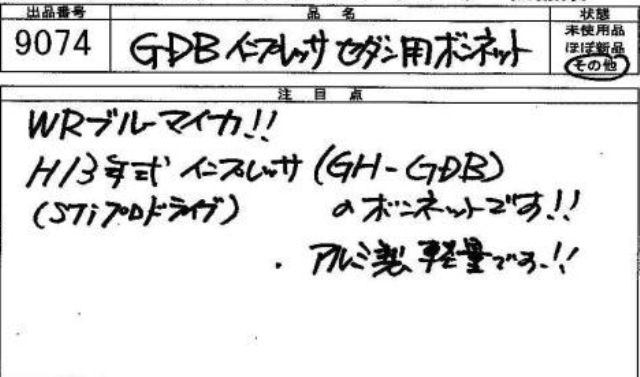 出品番号 品名 状態
9074 GDB インプレッサ セダン用ボンネット
未使用品
ほぼ新品
その他
注目点
WRブルーマイカ!!
H13年式 インプレッサ (GH-GDB)
(STiプロドライブ) のボンネットです!!
・アルミ製、軽量です!!